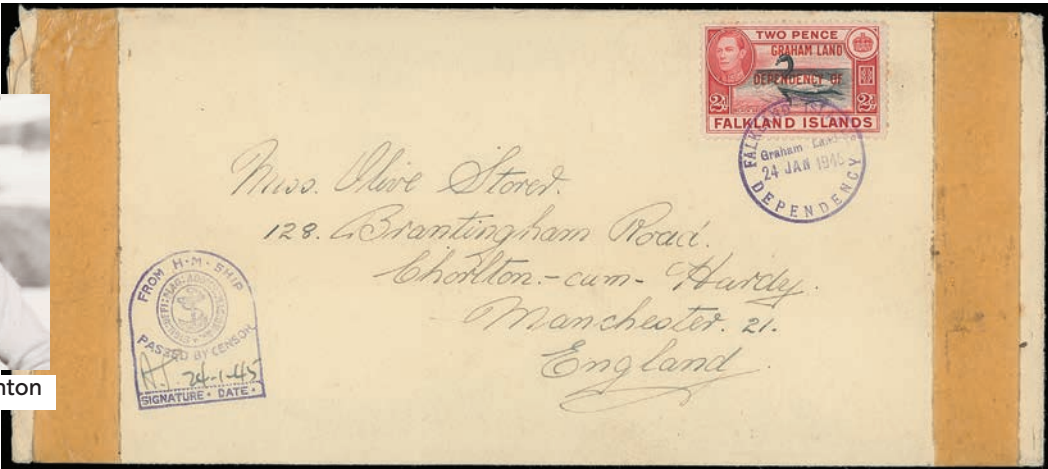 TWO PENCE
GRAHAM LAND
DEPENDENCY OF
2d 2d
FALKLAND ISLANDS
FALKLAND
Graham Land
24 JAN 194
DEPENDENCY
Miss. Olive
128. Brantingham Road.
Chorlton-cum-Hardy.
Manchester. 21.
England.
FROM H·M·SHIP
PASSED BY CENSOR
24-1-45
SIGNATURE · DATE ·
nton